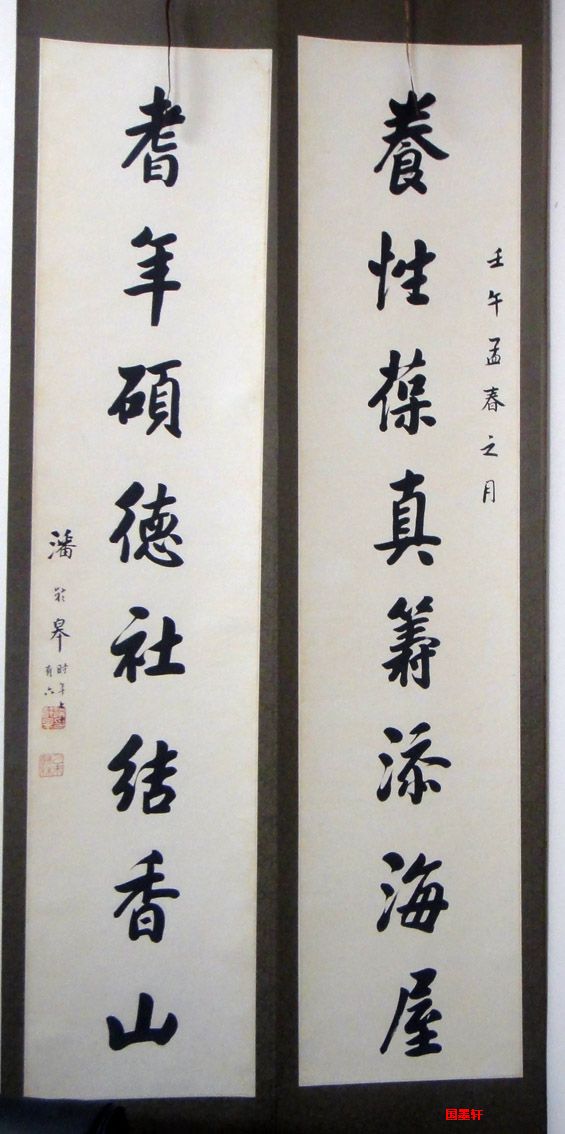 壬午孟春之月
養性葆真籌添海屋
耆年碩德社結香山
潘齡皋時年七十有六
国墨轩